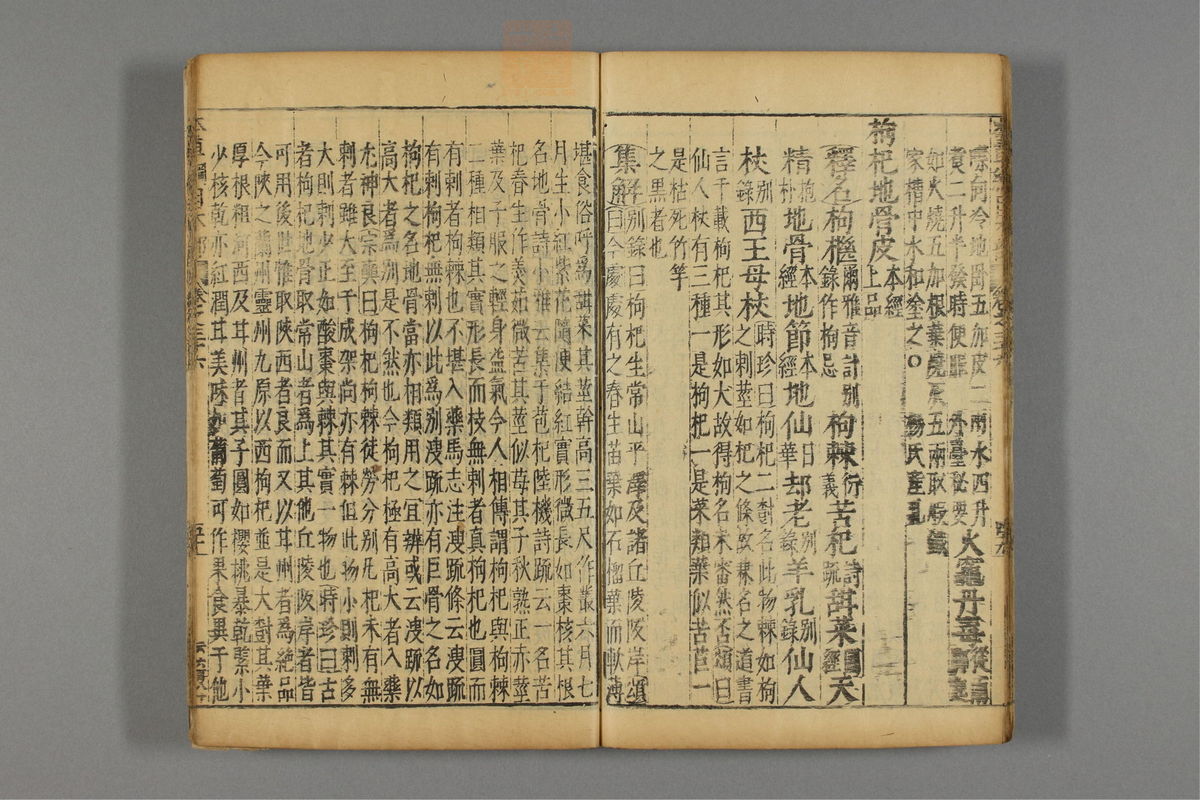 毒令地骨五加皮二兩水四升
煮二升半發時便服外臺秘要火竈丹毒從
如火燒五加根葉燒灰五兩取煅鐵
家槽中水和塗之〇楊氏產乳
枸杞地骨皮本經上品
釋名枸檵爾雅音計別錄作枸忌枸棘衍義苦杞詩疏甜菜圖經天
精抱朴地骨本經地節本經地仙日華却老別錄羊乳別錄仙人
杖別錄西王母杖時珍曰枸杞二樹名此物棘如枸
之刺莖如杞之條故兼名之道書
言千載枸杞其形如犬故得枸名未審然否頌曰
仙人杖有三種一是枸杞一是菜類葉似苦苣一
是枯死竹竿
之黑者也
集解別錄曰枸杞生常山平澤及諸丘陵阪岸頌
曰今處處有之春生苗葉如石榴葉而軟薄
堪食俗呼為甜菜其莖幹高三五尺作叢六月七
月生小紅紫花隨便結紅實形微長如棗核其根
名地骨詩小雅云集于苞杞陸機詩疏云一名苦
杞春生作羹茹微苦其莖似莓其子秋熟正赤莖
葉及子服之輕身益氣今人相傳謂枸杞與枸棘
二種相類其實形長而枝無刺者真枸杞也圓而
有刺者枸棘也不堪入藥馬志注溲疏條云溲疏
有刺枸杞無刺以此為別溲疏亦有巨骨之名如
枸杞之名地骨當亦相類用之宜辨或云溲疏以
高大者為別是不然也今枸杞極有高大者入藥
尤神良宗奭曰枸杞枸棘徒勞分別凡杞未有無
刺者雖大至于成架尚亦有棘但此物小則刺多
大則刺少正如酸棗與棘其實一物也時珍曰古
者枸杞地骨取常山者為上其他丘陵阪岸者皆
可用後世惟取陝西者良而又以甘州者為絕品
今陝之蘭州靈州九原以西枸杞並是大樹其葉
厚根粗河西及甘州者其子圓如櫻桃暴乾緊小
少核乾亦紅潤甘美味如葡萄可作果食異于他